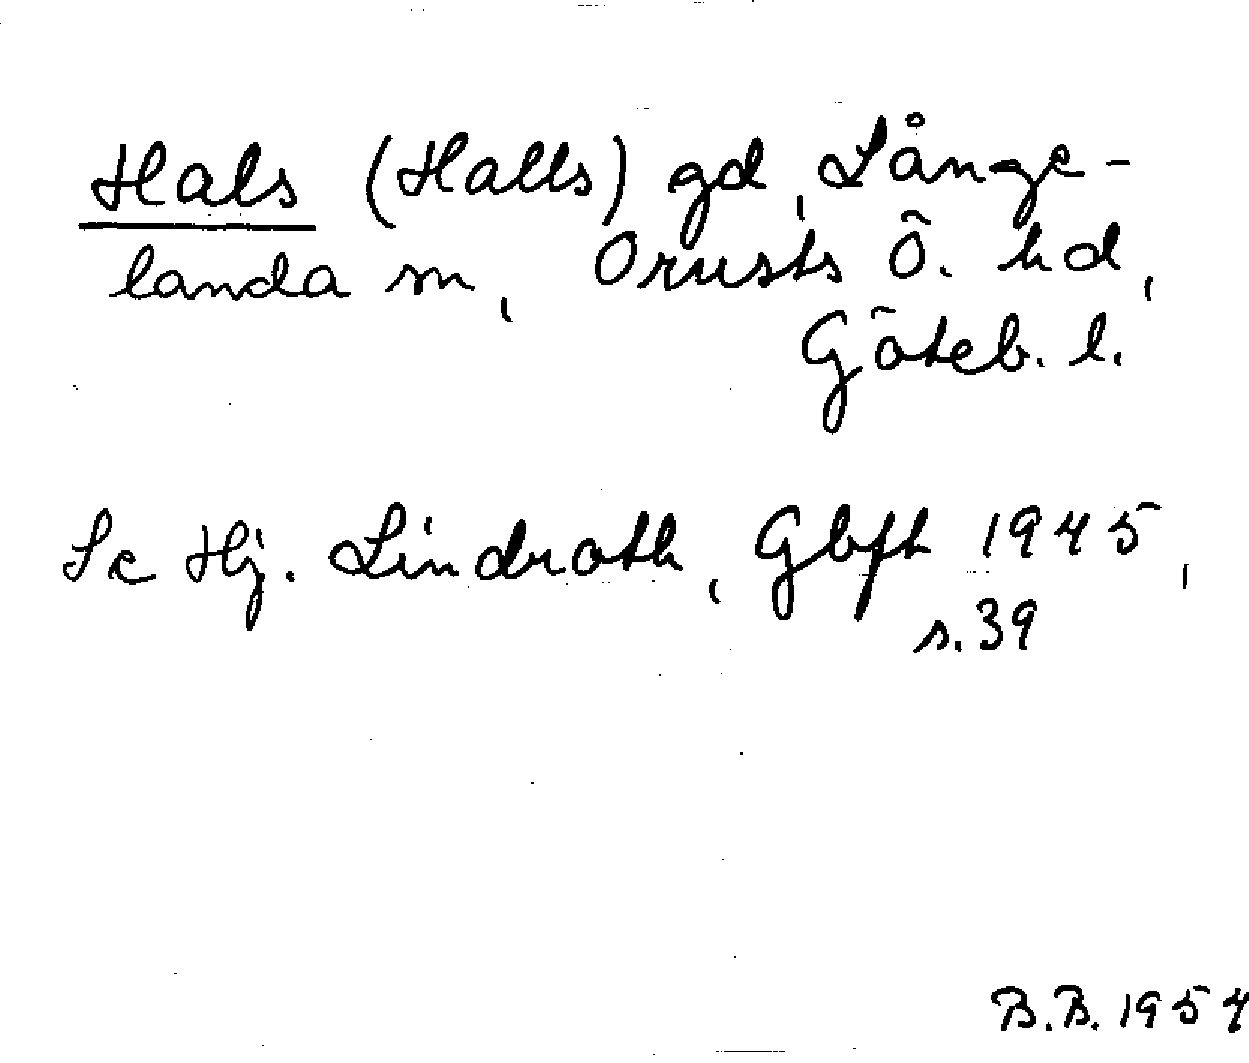 Hals (Halls) gd, Långe-
landa sn, Orusts Ö. hd,
Göteb. l.
Se Hj. Lindroth, Gbft 1945,
s. 39
B.B. 1954